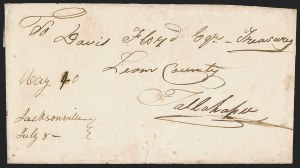 To Davis Floyd Esqr. Treasurer
Leon County
Tallahassee
Way 40
Jacksonville
July 8